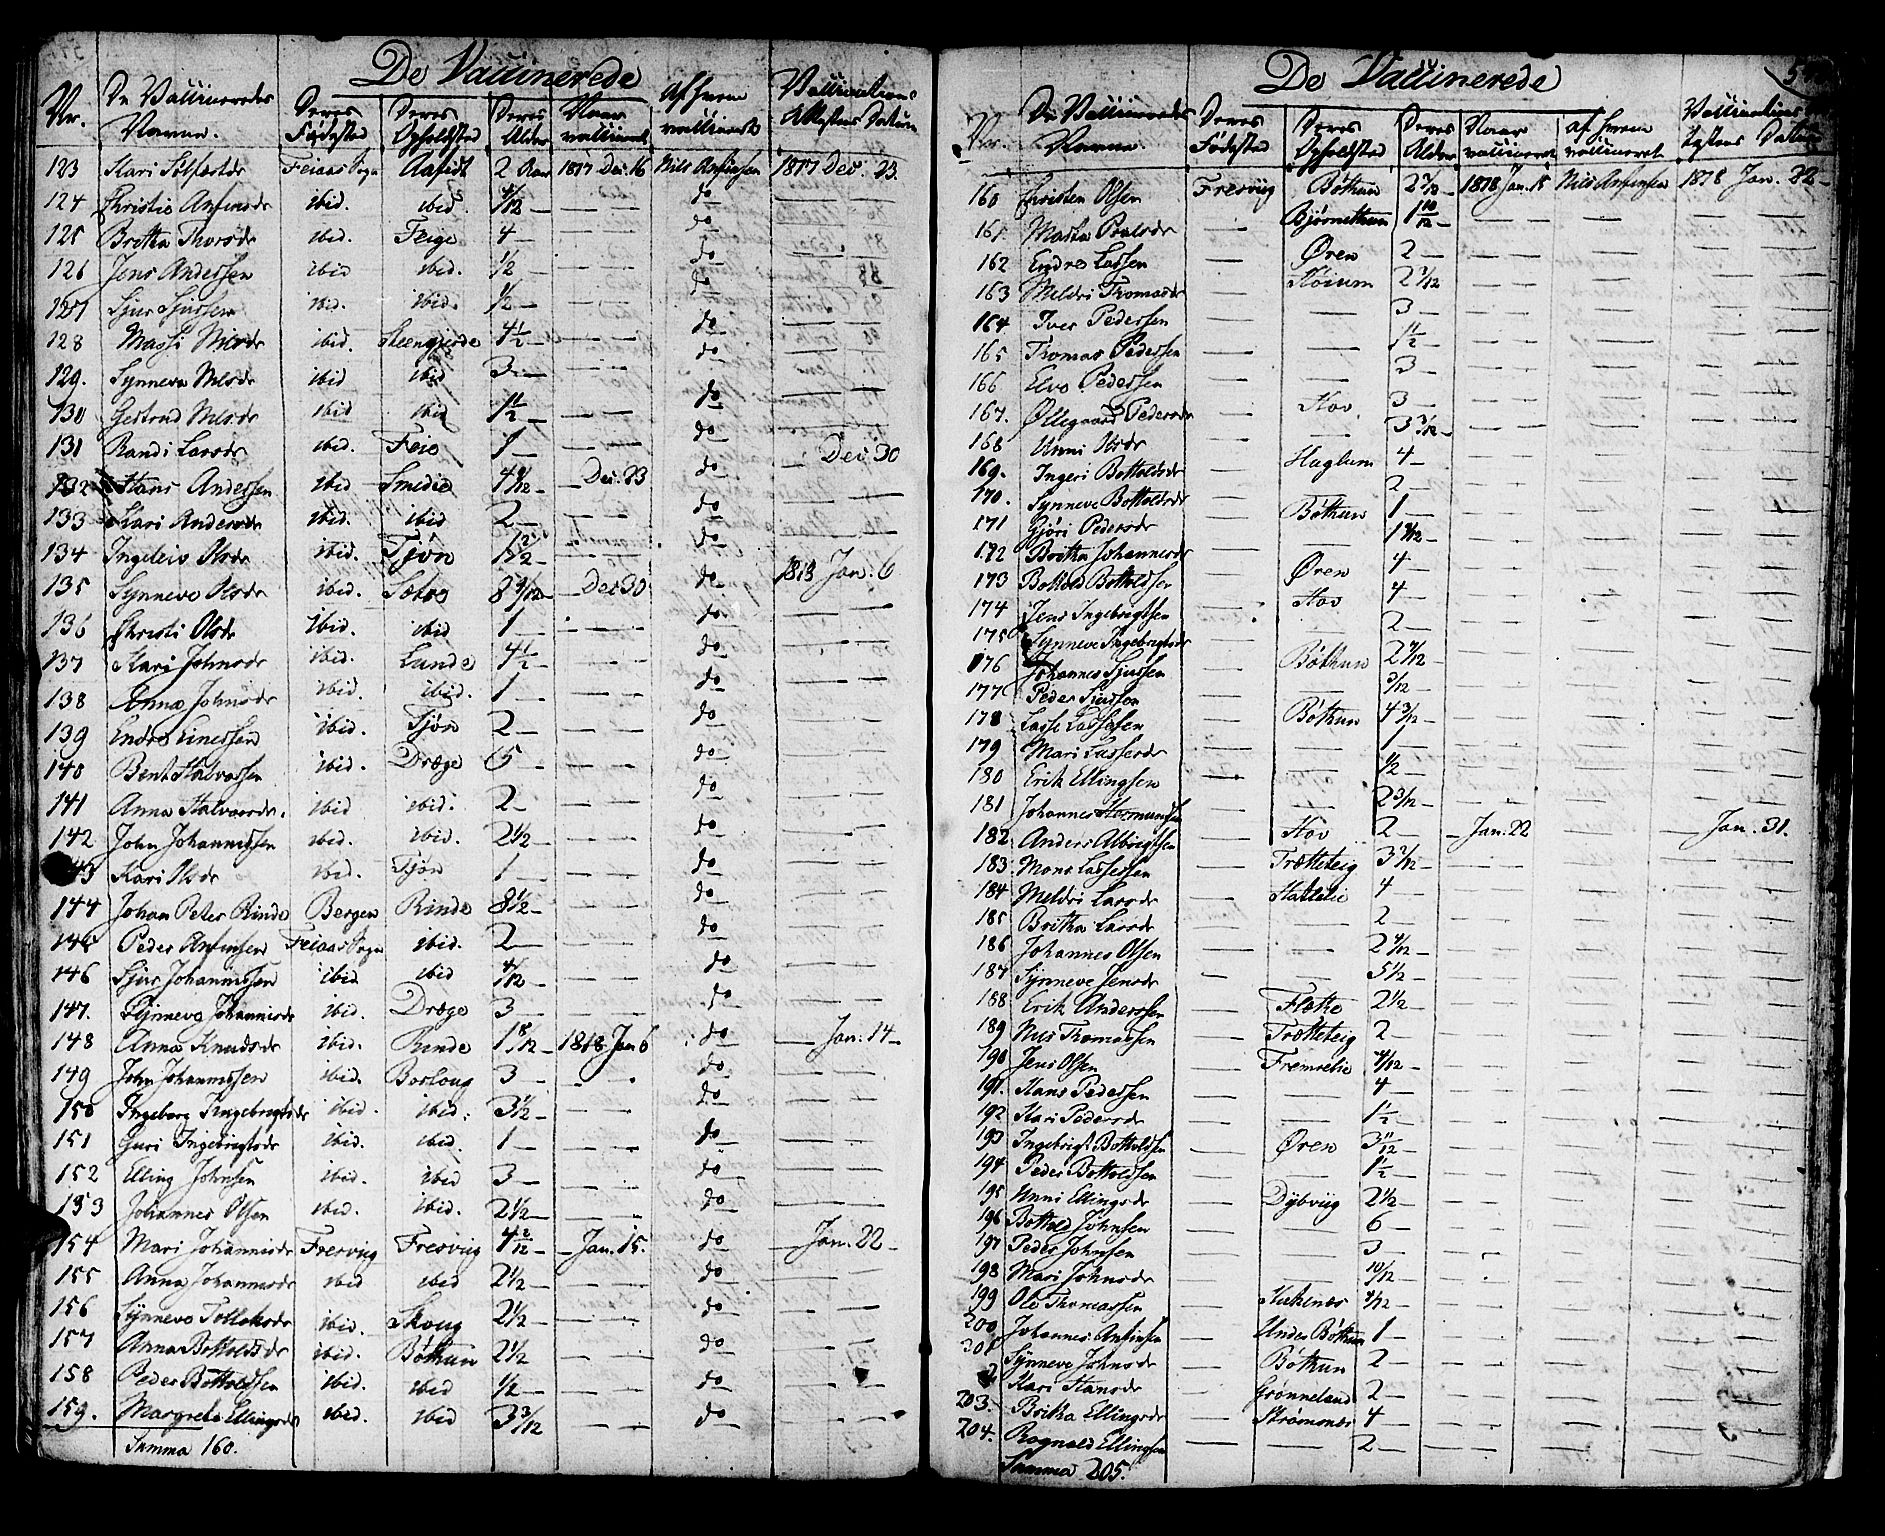 De Vaccinerede
Nr. De Vaccineredes Navne. Deres Fødested Deres Opholdsted Deres Alder Naar vaccineret Af hvem vaccineret Vaccinations Attestens Datum
123 Kari Feiaas Sogn 2 Aar 1817 Dec. 16 Nils Anfinsen 1817 Dec. 23.
124 Christie Anfinsdr ibid. ibid. 4/12 — do
125 Brytha Thorsdr ibid. Feige 4 — do
126 Jens Andersen ibid ibid. 1/2 — do
127 Sjur Sjursen ibid. ibid. 1/2 — do
128 Massi Nilsdr ibid. Steengjerde 4 1/2 — do
129. Synneva Nilsdr ibid ibid 3 — do
130 Gertrud Nilsdr ibid ibid 1 1/2 — do
131 Randi Larsdr ibid. Feie 1 — do — Dec. 30
132 Hans Andersen ibid Smedie — Dec. 23 do
133 Kari Andersdr ibid. ibid 2 — do
134 Ingeleiv Olsdr ibid. Tjøn do
135 Synneve Olsdr ibid. — Dec 30 do 1818 Jan. 6
136 Christi Olsdr ibid. ibid 1 — do
137 Kari Johnsdr ibid. Lunde 4 1/2 — do
138 Anna Johnsdr ibid. ibid. 1 — do
139 Endre Einersen ibid. Tjøn 2 — do
140 Bent Halvorsen ibid. Dræge 5 — do
141 Anna Halvorsdr. ibid ibid. 2 — do
142 John Johannessen ibid. ibid. 2 1/2 — do
143 Kari Olsdr ibid. Tjøn 1 — do
144 Johan Peter Rinde Bergen Rinde 8 1/2 — do
145 Peder Anfinsen Feiaas Sogn ibid. 2 — do
146 Sjur Johannessen ibid ibid 4/12 — do
147. Synneve Johannesdr ibid. Dræge 3 — do
148 Anna Knudsdr ibid. Rinde 1 8/12 — 1818 Jan 6 do — Jan. 14 —
149 John Johannessen ibid. Borloug 3 — do
150 Ingeborg Ingebrigtsdr ibid. ibid. 3 1/2 — do
151 Guri Ingebrigtsdr ibid. ibid. 1 — do
152 Elling Johnsen ibid. ibid 3 — do
153 Johannes Olsen ibid. ibid. 2 1/2 — do
154 Mari Johannesdr Fresviig Fresviig 4 2/12 — — Jan. 15. do — Jan. 22 —
155 Anna Johannesdr ibid ibid 2 1/2 — do
156 Synneve Tollefsdr ibid. Skoug 2 1/2 — do
157 Anna Botholdsdr ibid. Bøthun 2 1/2 do
158 Peder Botholdsen ibid. ibid 1/2 — do
159. Margrete Ellingsdr ibid. ibid 3 3/12 do
Summa 160.
De Vaccinerede
Nr. De Vaccineredes Navne. Deres Fødested Deres Opholdsted Deres Alder Naar vaccineret af hvem vaccineret Vaccinations Attestens Datum
160 Christen Olsen Fresviig Bøthun 2 7/12 — 1818 Jan. 15 Nils Anfinsen 1818 Jan. 22 —
161. Martha Poulsdr — Bjørnethun 1 10/12 —
162 Endre Lassen — Øren 2 —
163 Meldri Thomasdr — Høium 2 7/12
164 Iver Pedersen — — 3 —
165 Thomas Pedersen — — 1 1/2 —
166 Elve Pedersen — — 3 —
167. Øllegaard Pedersdr — Hov 3 —
168 Unni Olsdr — — 3 7/12 —
169. Ingeri Botholdsdr — Haglum 4 —
170. Synneve Botholdsdr — — 2 —
171 Gjøri Pedersdr — Bøthun 1 —
172 Britha Johannesdr — —
173 Bothold Botholdsen — Øren 4 —
174 Jens Ingebrigtsen — Hov 4 —
175 Synneve Ingebrigtsdr — — 2 —
176 Johannes Sjursen — Bøthun 2 7/12 —
177 Peder Sjursen — — 3/12 —
178 Lasse Lassesen — Bøthun 4 3/12 —
179 Mari Lassesdr — — 1 —
180 Erik Ellingsen — — 1/2 —
181 Johannes Hermundsen — — 2 3/12 —
182 Anders Albrigtsen — Hov 2 — — Jan. 22 — — Jan. 31.
183. Mons Lassesen — Trætteteig 3 7/12 —
184 Meldri Larsdr — 4 —
185 Britha Larsdr — — 2 —
186 Johannes Olsen — — 2 4/12 —
187 Synneve Jensdr — — 5 1/2 —
188 Erik Andersen — Flætte 2 1/2 —
189 Nils Thomassen — Trætteteig 2 —
190 Jens Olsen — Fremrelie 4/12 —
191. Hans Pedersen — — 4 —
192 Kari Pedersdr — — 1 1/2 —
193 Ingebrigt Botholdsen — Øren 3 11/12 —
194 Peder Botholdsen — — 1 1/2 —
195 Unni Ellingsdr — Dybviig 2 1/2 —
196 Bothold Johnsen — — 6 —
197 Peder Johnsen — — 3 —
198 Mari Johnsdr — — 10/12 —
199 Ole Thomassen — Kirkenæs 4/12 —
200 Johannes Anfinsen — Under Bøthun 1 —
201 Synneve Johnsdr — Bøthun 2 —
2 Kari Hansdr — Grønneland 2 —
203. Britha Ellingsdr — Strømsnes 4 —
204. Rognald Ellingsen — — 2 —
Summa 205.